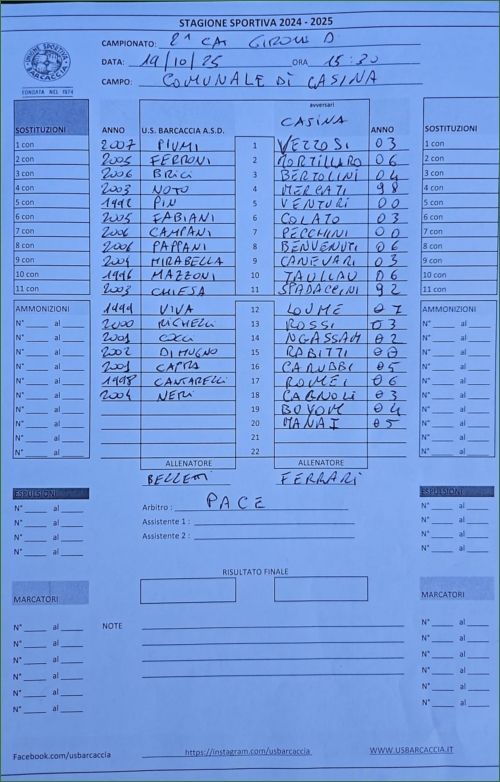 STAGIONE SPORTIVA 2024 - 2025
UNIONE SPORTIVA BARCACCIA
FONDATA NEL 1974
CAMPIONATO: 2^ CAT GIRONE D
DATA: 19/10/25 ORA 15:30
CAMPO: COMUNALE Di CASINA
avversari
CASINA
SOSTITUZIONI ANNO U.S. BARCACCIA A.S.D. ANNO SOSTITUZIONI
1 con 2007 PIUMI 1 VEZZOSI 03 1 con
2 con 2005 FERRONI 2 TORTILLARO 06 2 con
3 con 2006 BRiCi 3 BERTOLINI 04 3 con
4 con 2003 NOTO 4 MERCATI 98 4 con
5 con 1992 PIN 5 VENTURI 00 5 con
6 con 2005 FABIANI 6 COLATO 03 6 con
7 con 2006 CAMPANI 7 PECCHINI 00 7 con
8 con 2006 PAPPANI 8 BENVENUTI 06 8 con
9 con 2004 MIRABELLA 9 CANEVARI 03 9 con
10 con 1996 MAZZONI 10 TAULLAU 06 10 con
11 con 2003 CHIESA 11 SPADACCINI 92 11 con
AMMONIZIONI 1999 VIVA 12 LOUME 07 AMMONIZIONI
N° ____ al ____ 2000 RICHELLi 13 ROSSI 03 N° ____ al ____
N° ____ al ____ COCCi 14 NGASSAM 02 N° ____ al ____
N° ____ al ____ 2002 DI MUGNO 15 RABITTI 00 N° ____ al ____
N° ____ al ____ CAPRA 16 CARUBBI 05 N° ____ al ____
N° ____ al ____ 1998 CANTARELLi 17 ROMEI 06 N° ____ al ____
N° ____ al ____ 2004 NERi 18 CAGNOLI 03 N° ____ al ____
N° ____ al ____ 19 BOYOM 04 N° ____ al ____
N° ____ al ____ 20 MANAI 05 N° ____ al ____
N° ____ al ____ 21 N° ____ al ____
N° ____ al ____ 22 N° ____ al ____
ALLENATORE ALLENATORE
BELLETI FERRARI
ESPULSIONI ESPULSIONI
N° ____ al ____ Arbitro : PACE N° ____ al ____
N° ____ al ____ Assistente 1 : N° ____ al ____
N° ____ al ____ Assistente 2 : N° ____ al ____
N° ____ al ____ N° ____ al ____
RISULTATO FINALE
MARCATORI MARCATORI
N° ____ al ____ NOTE N° ____ al ____
N° ____ al ____ N° ____ al ____
N° ____ al ____ N° ____ al ____
N° ____ al ____ N° ____ al ____
N° ____ al ____ N° ____ al ____
N° ____ al ____ N° ____ al ____
Facebook.com/usbarcaccia https://instagram.com/usbarcaccia WWW.USBARCACCIA.IT